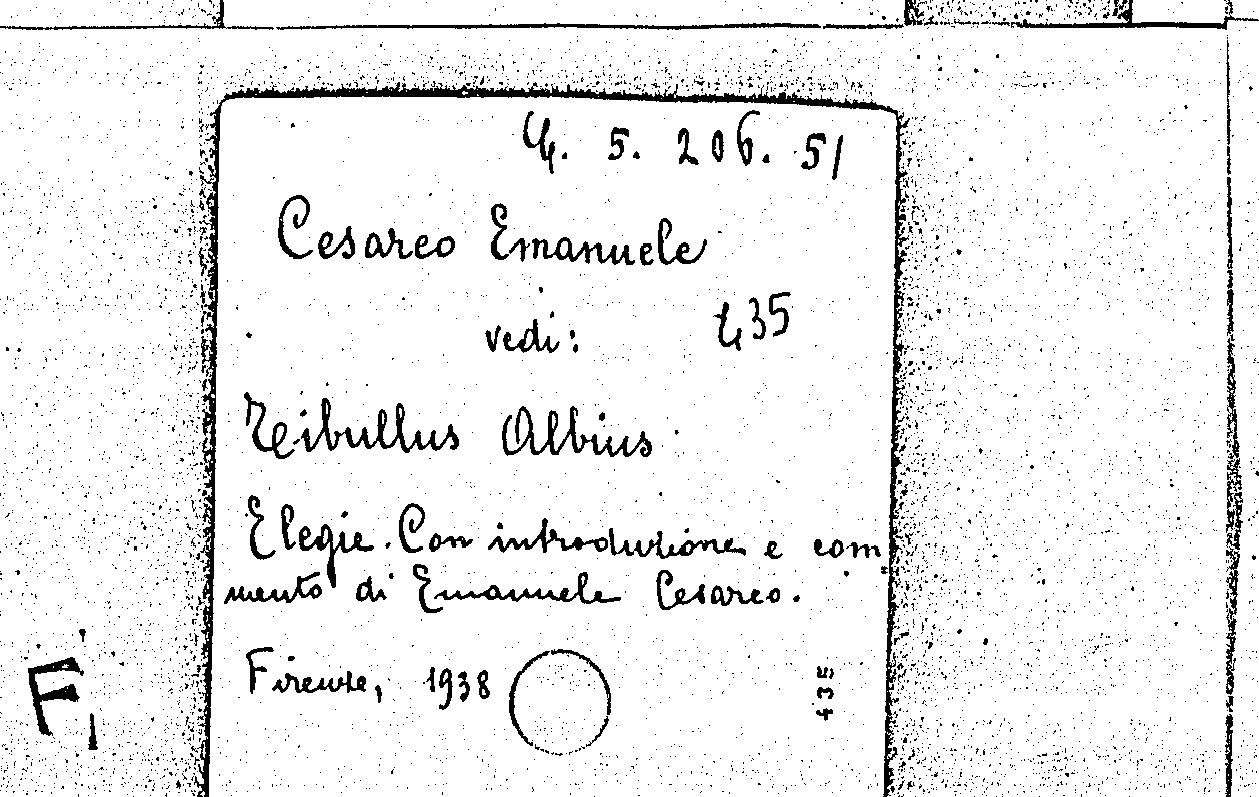 4. 5. 206. 51
Cesareo Emanuele
vedi: 435
Tibullus Albius
Elegie. Con introduzione e com
mento di Emanuele Cesareo.
Firenze, 1938
435
F1